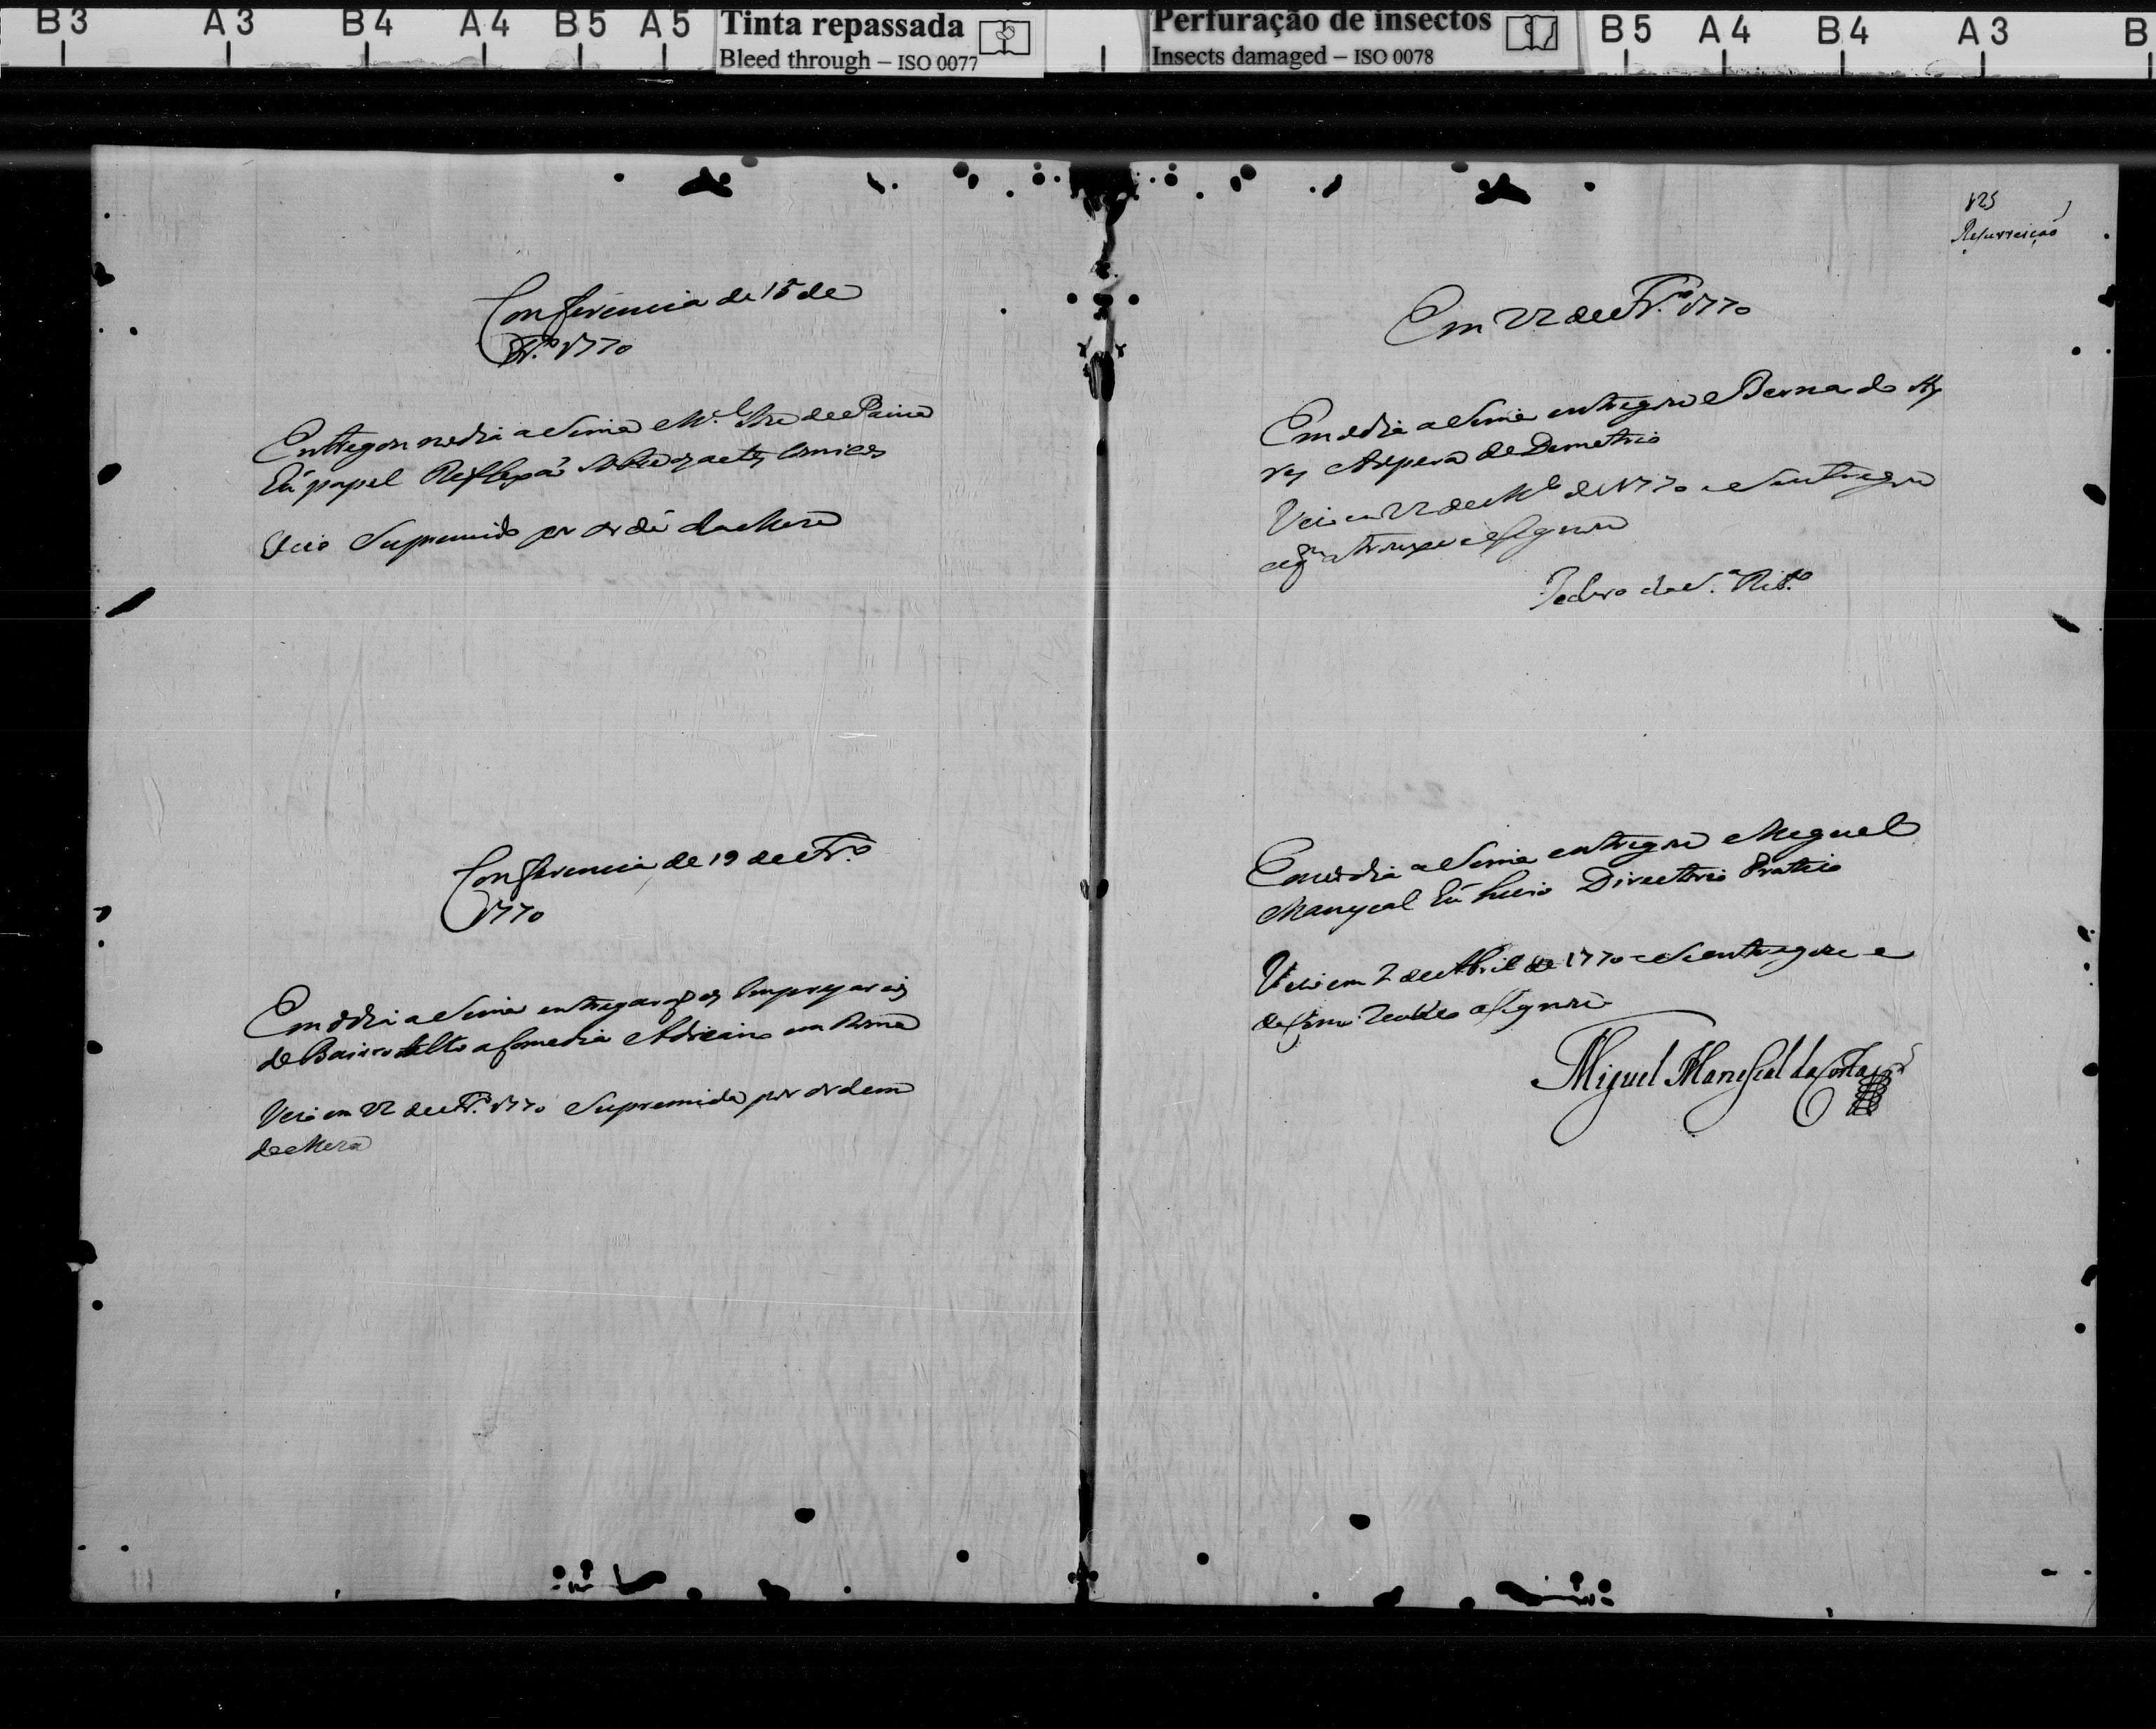 B3 A3 B4 A4 B5 A5
Tinta repassada
Bleed through – ISO 0077
Perfuração de insectos
Insects damaged – ISO 0078
B5 A4 B4 A3 B
Conferencia de 15 de
Fr.º 1770
Entregou no dia acima M.el Jze de Paiva
hũ papel Reflexaõ sobre os actos comicos
Veio Supremido por ordẽ da Meza
Conferencia de 19 de Fr.º
1770
Em o dia acima entregaraõ os Emprezarios
de Bairro Alto a Comedia Adriano em Roma
Veio em 22 de Fr.º 1770 Supremida por ordem
da Meza
125
Resurreiçaõ
Em 22 de Fr.º 1770
Em o dia acima entregou Bernardo
Opera de Demetrio
Veio em 22 de de 1770 e Se entregou
a q.m a trouxe e asignou
Pedro da S.ª Rib.ro
Em o dia acima entregou Miguel
Manescal hũ Livro Directorio Pratico
Veio em 2 de Abril de 1770 e Se entregou e
de como asignou
Miguel Manescal da Costa